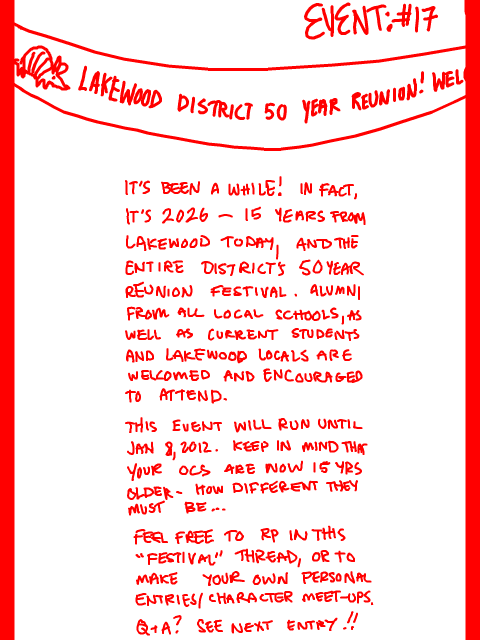 EVENT:#17
LAKEWOOD DISTRICT 50 YEAR REUNION! WEL
IT'S BEEN A WHILE! IN FACT,
IT'S 2026 – 15 YEARS FROM
LAKEWOOD TODAY, AND THE
ENTIRE DISTRICT'S 50 YEAR
REUNION FESTIVAL. ALUMNI
FROM ALL LOCAL SCHOOLS, AS
WELL AS CURRENT STUDENTS
AND LAKEWOOD LOCALS ARE
WELCOMED AND ENCOURAGED
TO ATTEND.
THIS EVENT WILL RUN UNTIL
JAN 8, 2012. KEEP IN MIND THAT
YOUR OCS ARE NOW 15 YRS
OLDER~ HOW DIFFERENT THEY
MUST BE...
FEEL FREE TO RP IN THIS
"FESTIVAL" THREAD, OR TO
MAKE YOUR OWN PERSONAL
ENTRIES/CHARACTER MEET-UPS.
Q+A? SEE NEXT ENTRY.!!